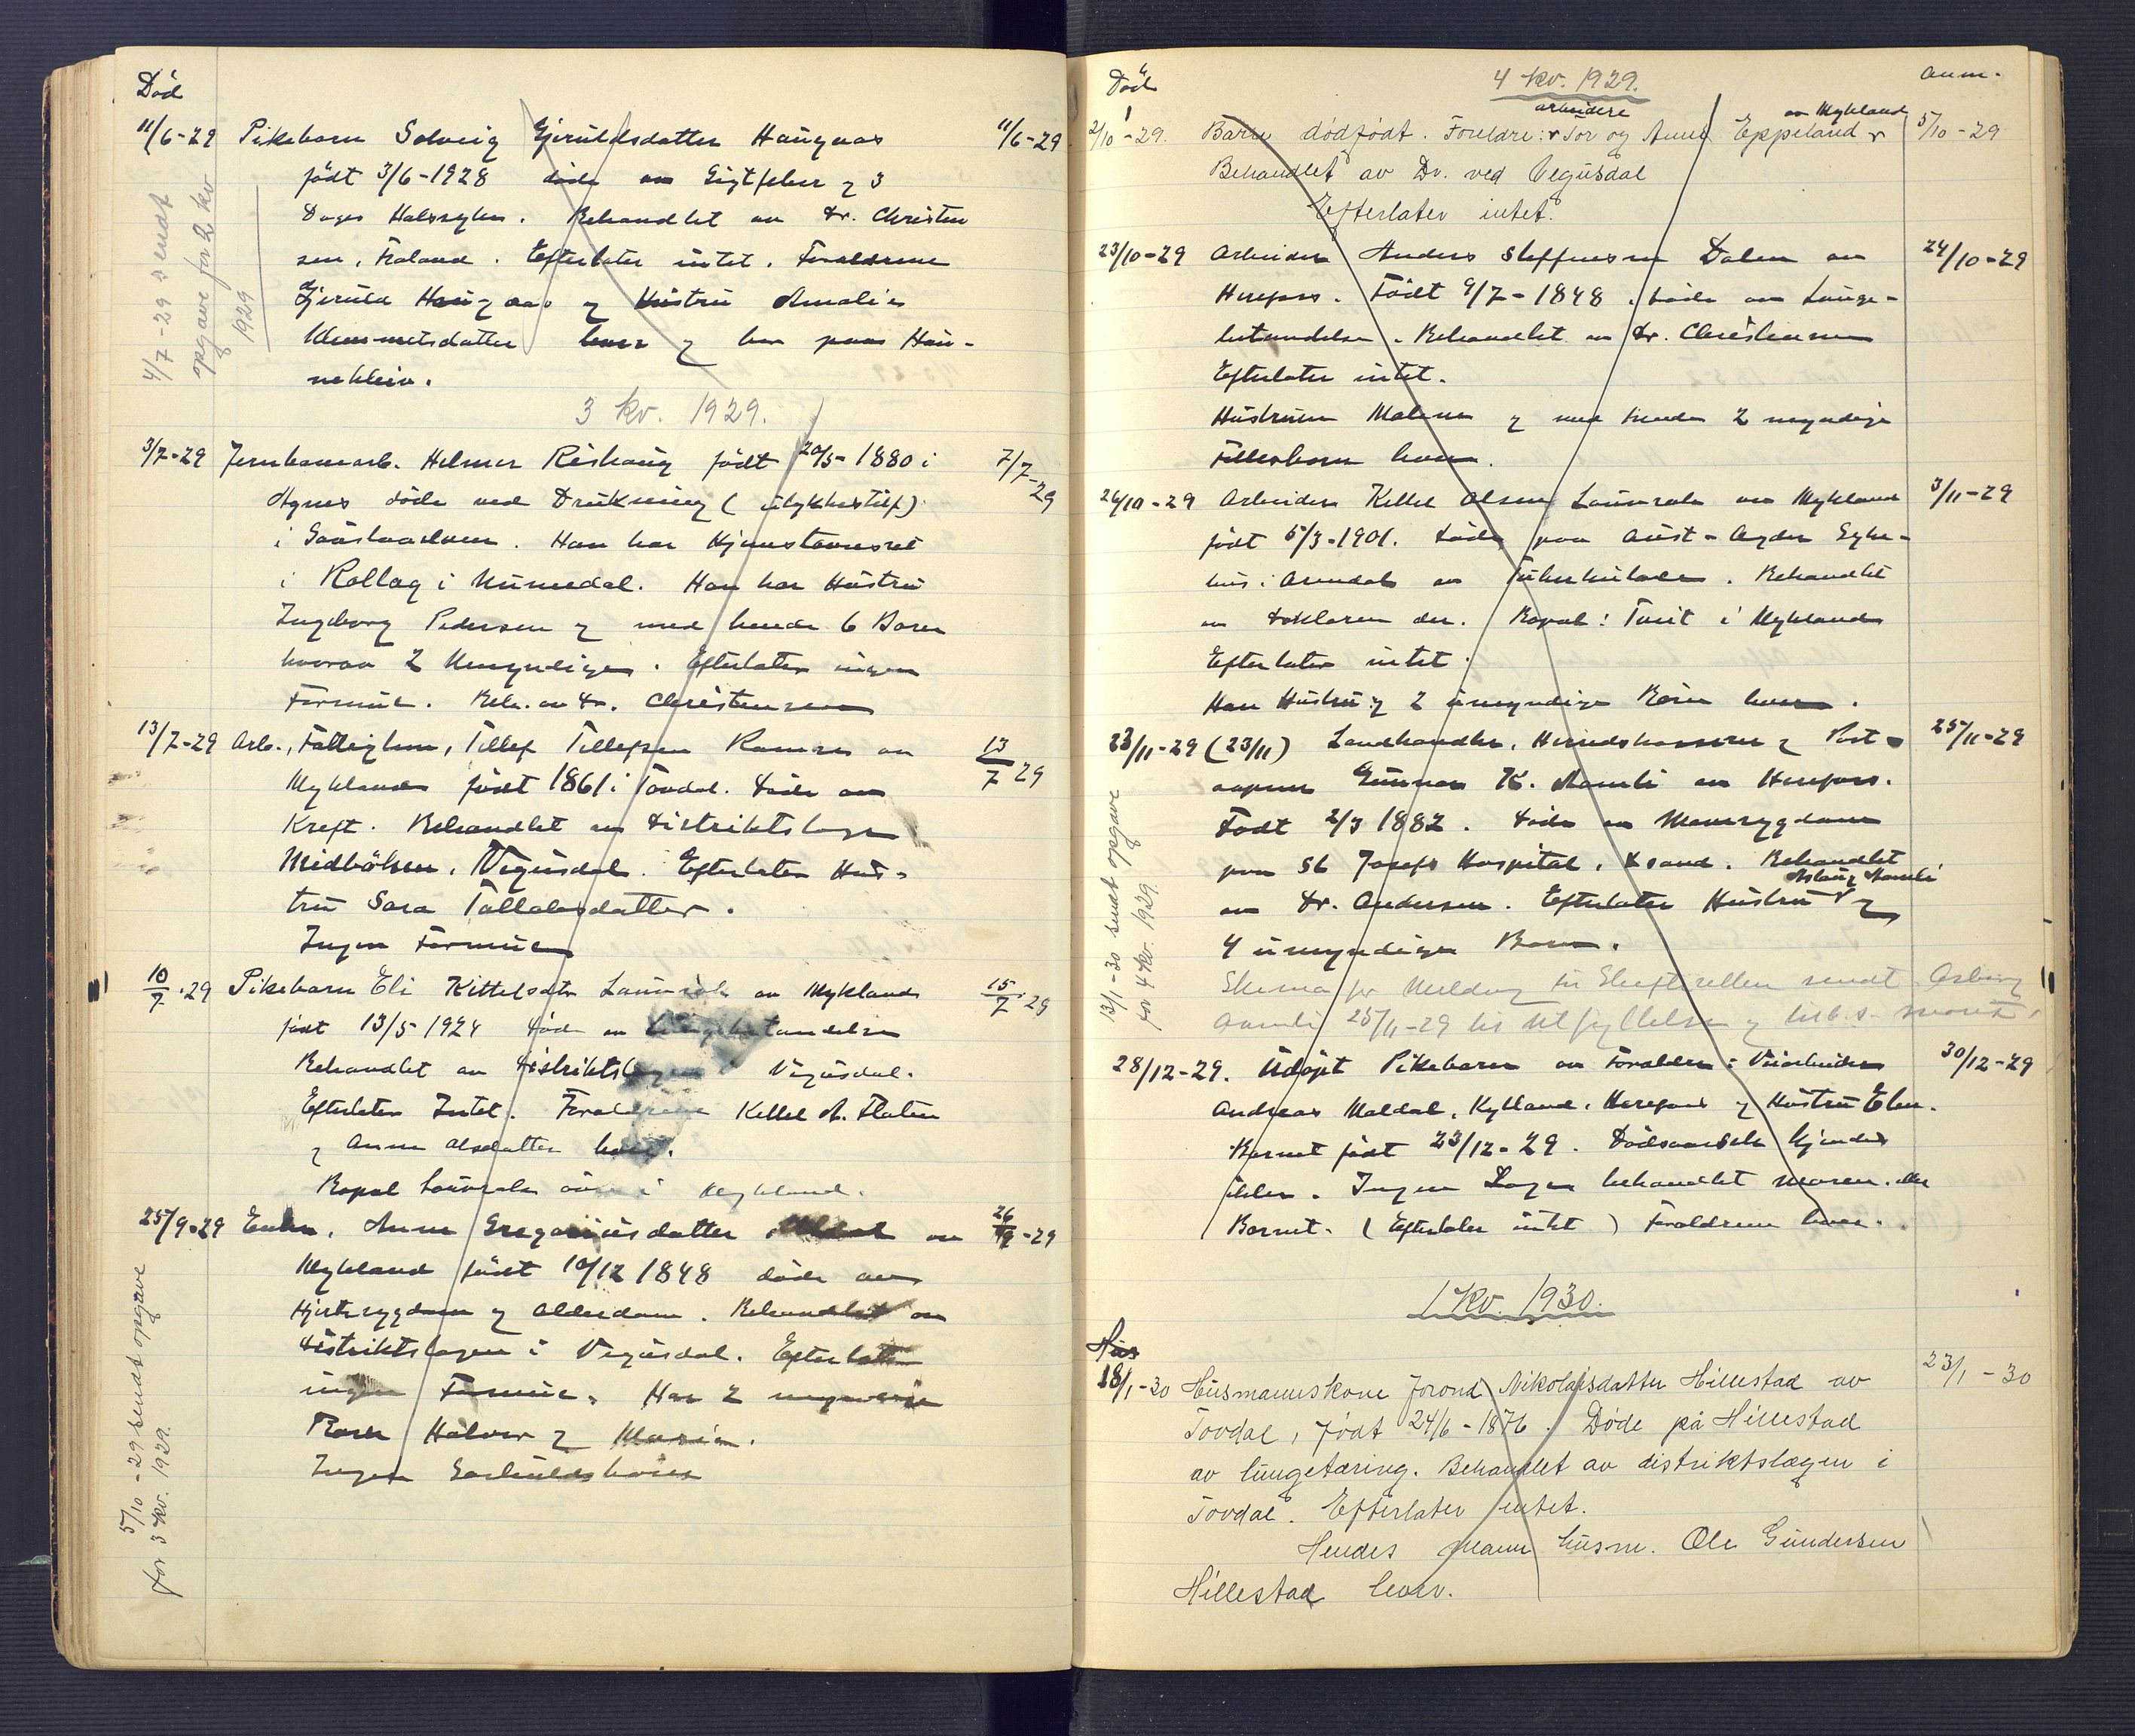 Død
11/6-29 Pikebarn Solveig Gjeruldsdatter Haugaas 11/6-29
født 3/6-1928 døde av Gigtfeber og 3
Dages Halssyke. Behandlet av Dr. Christen
sen, Froland. Efterlater intet. Forældrene
Gjeruld Haugaas og Hustru Amalie
Klemmetsdatter lever og bor paa Hau-
nekleiv.
4/7-29 sendt
opgave for 2 kv
1929
3 kv. 1929.
3/7-29 Jernbanearb. Helmer Rishaug født 20/5-1880 i 7/7-29
Agnes døde ved Drukning (ulykkestilf)
i Gauslaaelven. Han har Hjemstavnsret
i Rollag i Numedal. Han har Hustru
Ingeborg Pedersen og med hende 6 Barn
hvorav 2 Umyndige. Efterlater ingen
Formue. Beh. av Dr. Christensen
13/7-29 Arb., Fattiglem, Tellef Tellefsen Ramse av 13/7 29
Mykland født 1861 i Tovdal. Døde av
Kreft. Behandlet av Distriktslæge
Midbøhen, Vegusdal. Efterlater Hus-
tru Sara Tallaksdatter.
Ingen Formue
10/7-29 Pikebarn Eli Kittelsdtr Lauvrak av Mykland 15/7-29
født 13/5-1924 død av Lungebetændelse
Behandlet av Distriktslægen i Vegusdal.
Efterlater Intet. Forældrene Kittel A. Flaten
og Anne Olsdatter lever.
Bopæl Lauvrak i Mykland.
25/9-29 Enke, Anne Gregoriusdatter av 26/9-29
Mykland født 10/12 1848 døde av
Hjertesygdom og Alderdom. Behandlet av
Distriktslægen i Vegusdal. Efterlater
ingen Formue. Har 2 myndige
Barn Halvor og Maria.
Ingen Særkuldsbarn
5/10-29 sendt opgave
for 3 kv. 1929.
Død 4 kv. 1929. anm.
arbeidere av Mykland
2/10-29. Barn dødfødt. Foreldre: Tor og Anne Eppeland 5/10-29
Behandlet av Dr. ved Vegusdal
Efterlater intet.
23/10-29 Arbeider Anders Steffensen Dalen av 24/10-29
Herefoss. Født 9/7-1848. Døde av Lunge-
betændelse. Behandlet av Dr. Christensen
Efterlater intet.
Hustruen Malene og med hende 2 myndige
Fællesbarn lever.
26/10-29 Arbeider Kittel Olsen Lauvrak av Mykland 3/11-29
født 5/3-1901. Døde paa Aust-Agder Syke-
hus i Arendal av Tuberkulose. Behandlet
av Doktoren der. Bopæl: Tveit i Mykland
Efterlater intet.
Han Hustru og 2 umyndige Børn lever.
23/11-29 (23/11) Landhandler, Herredskasserer og Post- 25/11-29
aapner Gunnar K. Aamli av Herefoss.
Født 2/3 1882. Døde av Mavesygdom
paa St Josefs Hospital, Ksand. Behandlet
Aslaug Aamli
av Dr. Andersen. Efterlater Hustru og
4 umyndige Barn.
Skema for Melding til Skifteretten sendt Aslaug
Aamli 25/11-29 til Utfyllelse og tilb.s.
13/1-30 sendt opgave
for 4 kv. 1929.
28/12-29. Udøpt Pikebarn av Forældre: Veiarbeider 30/12-29
Andreas Maldal, Kylland, Herefoss og Hustru Elen.
Barnet født 23/12-29. Dødsaarsak kjendes
ikke. Ingen Læge behandlet moren. eller
Barnet. (Efterlater intet) Forældrene lever.
1 Kv. 1930.
Hus
18/1-30 Husmannskone Jorond Nikolaisdatter Hillestad av 23/1-30
Tovdal, født 24/6-1876. Døde på Hillestad
av lungetæring. Behandlet av distriktslægen i
Tovdal. Efterlater intet.
Hendes mann husm. Ole Gundersen
Hillestad lever.